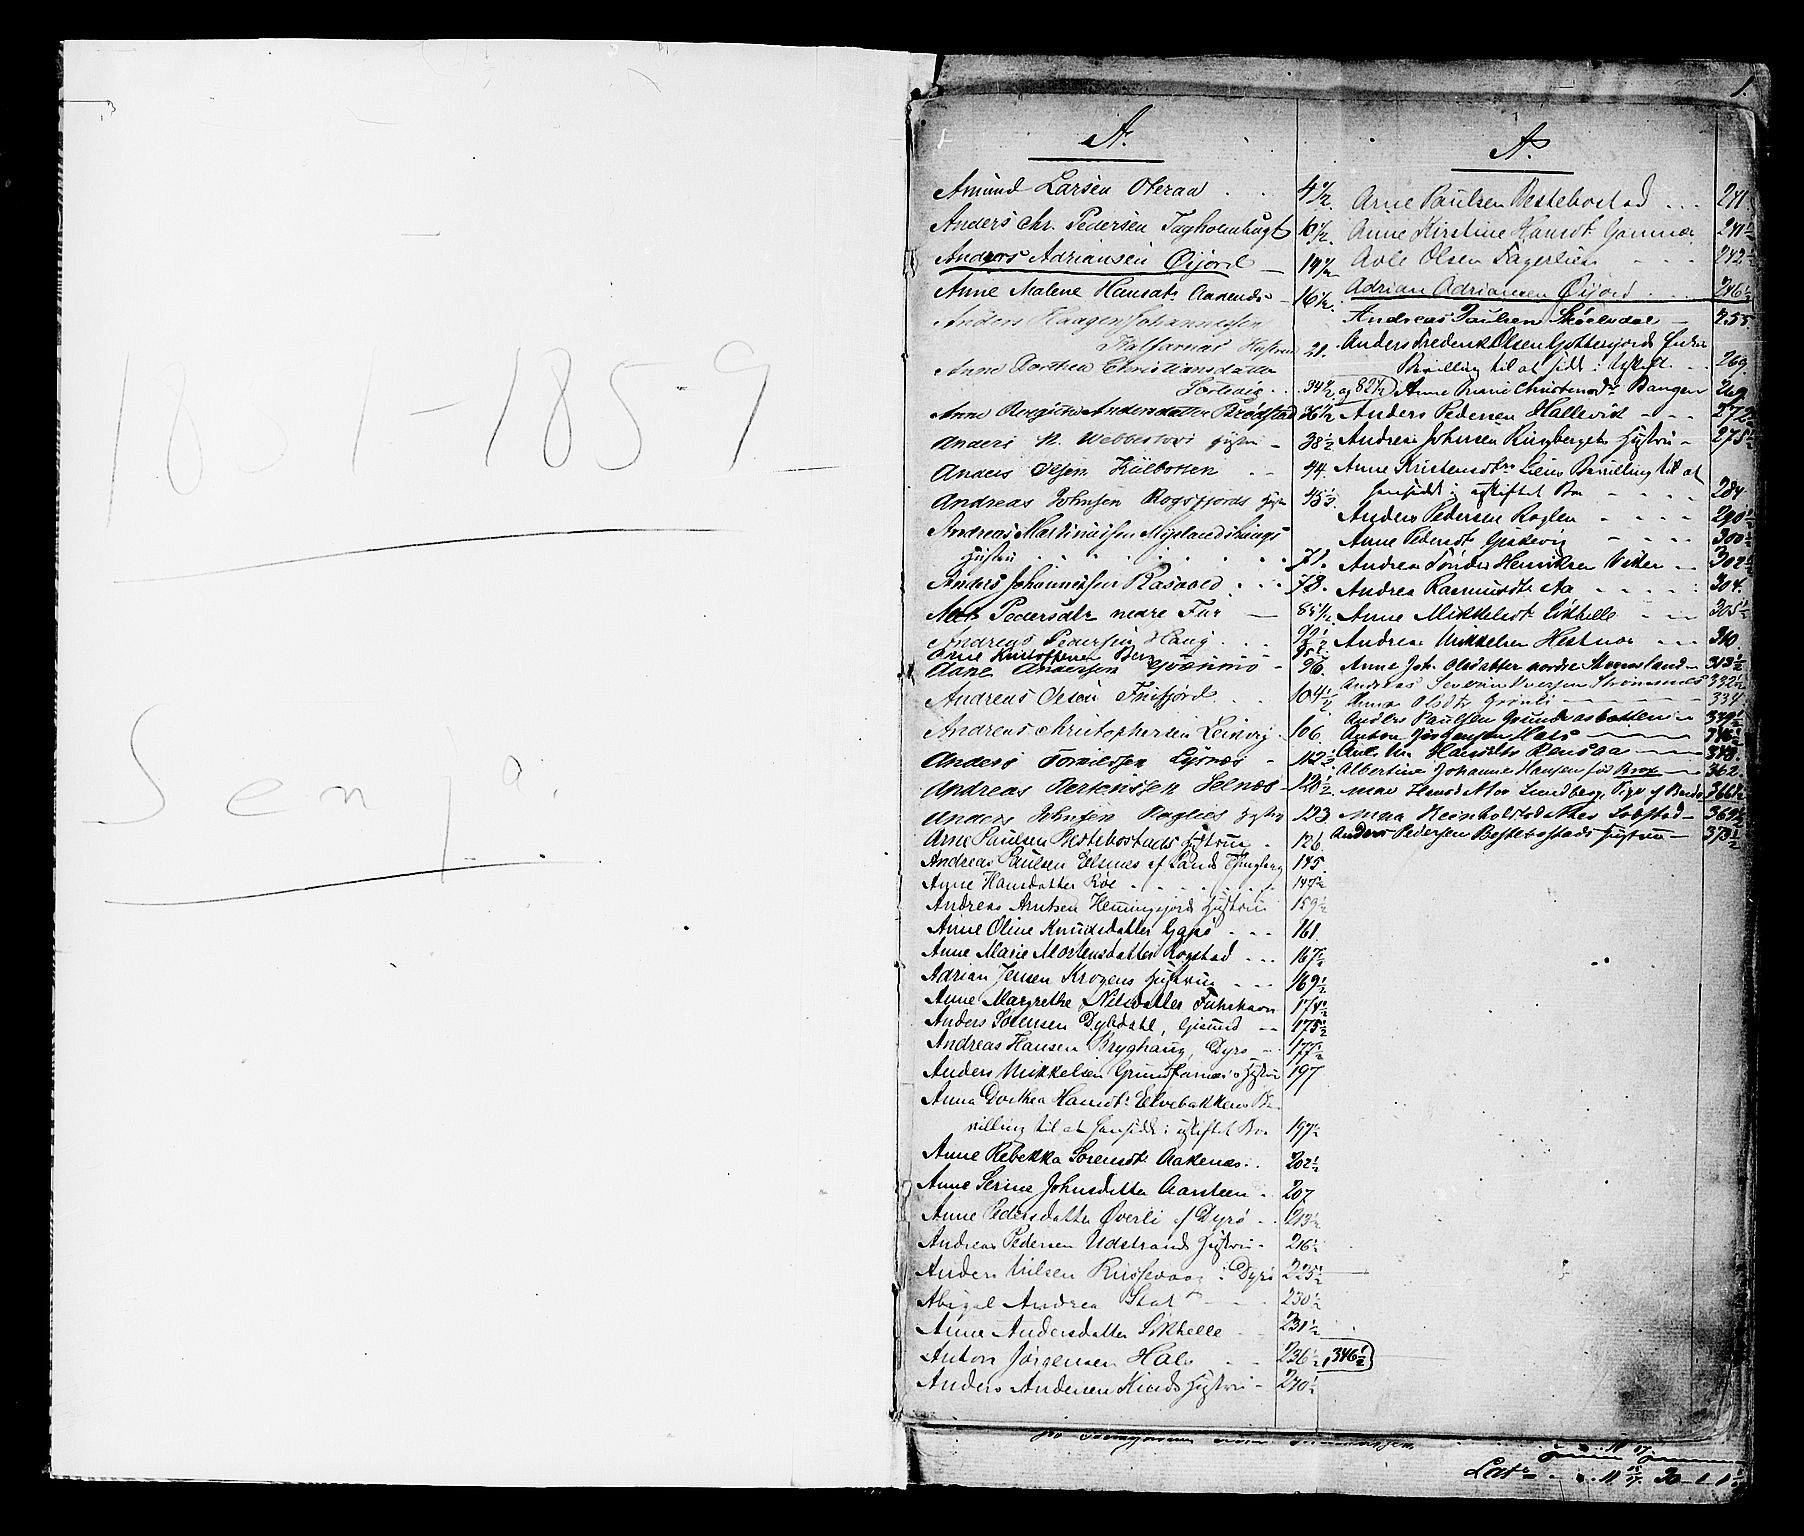 1851-1859
Senja.
1.
A.
Amund Larsen Oteraa . . 4 1/2.
Anders Chr. Pedersen 10 1/2.
Anders Adriansen Øijord — 14 1/2
Anne Malene Hansdtr Aakenes — 16 1/2.
Anders Haagen Johannessen
Kalfarnæs Hustru 21.
Anne Dorthea Christiansdatter
34 1/2 og 82 1/2
Anne Andersdatter Brødstad 36 1/2
Anders N. Hustru — 38 1/2
Anders Olsen Kulbotten . . 44.
Andreas Johnsen Rogsfjords Hustru 45 1/2.
Andreas Martinussen
Hustru . . . . . . 71.
Anders Johannessen Rasavold . . . 78.
Pedersdtr nedre Fur — 85 1/2.
Andreas Pedersen Haug . . . 92 1/2
Arne Kristoffersen Berg 95 1/2
Arne Andersen — 96.
Andreas Olsen Finfjord . . 104 1/2
Andreas Christophersen Leirvig . 106
Anders Tomilssen Lysnæs - 112 1/2
Andreas Mertinssen Selnæs — 120 1/2
Anders Johnsen Raglies Hustru 123
Arne Paulsen Bestebostads Hustru . 126.
Andreas Paulsen Elsnæs af Sands Thinglag 145
Anne Hansdatter Röe . . . . . 147 1/2
Andreas Arntsen Hemmingsjords Hustru 159 1/2
Anne Oline Knudsdatter Gapø - - - 161
Anne Marie Mortensdatter Rogstad - - - 167 1/2
Adrian Jensen Krogens Hustru - - - 169 1/2
Anne Margrethe Nilsdatter Finhavn 174 1/2
Anders Sørensen Dybdahl, Gisund -- 175 1/2
Andreas Hansen Bryghaug, Dyrø - 177 1/2
Anders Mikkelsen Grundfarnæs's Hustru 197
Anna Dorthea Hansdtr Elvebakkens Be-
villing til at hensidde i uskiftet Bo 197 1/2
Anne Rebekka Sørensdtr Aakenæs . . 202 1/2
Anne Serine Johnsdatter Aarsteen . 207
Anne Pedersdatter Øverli af Dyrø - . 213 1/2
Andreas Pedersen Udstrands Hustru - 216 1/2
Anders Nilsen Russevaag i Dyrø 225 1/2
Abigal Andrea - - 230 1/2
Anne Andersdatter Sikhelle - - 231 1/2
Anton Jørgensen Hals - - 236 1/2, 346 1/2
Anders Andersen Kinds Hustru - 240 1/2
A.
Arne Paulsen Bestebostad . . . 241
Anne Kirstine Hansdt Gamma. 241 1/2
Avle Olsen Fagerlien - - - 242 1/2
Adrian Adriansen Øijord . . . 246 1/2
Andreas Paulsen — 255
Anders Frederik Olsen Gottesjords Enke
Bevilling til at sidde i Uskift . . 269.
Anne Marie Christensdtr Bangen 269
Anders Pedersen Hallevik - - - 272 1/2
Andreas Johnsen Hustru - 275 1/2
Anne Kristensdtrs Liens Bevilling til at
hensidde i uskiftet Bo - - - - 284
Anders Pedersen Roglen - - - - 290 1/2
Anne Pedersdt Giskevig - - - - 300 1/2
Andreas Tønder Henriksen Vikten - . 302 1/2
Andrea Rasmusdtr Aa - - - - : 304.
Anne Mikkelsdt Sikhelle - - - - 305 1/2
Andreas Mikkelsen Hestnæs - - - 310
Anna Joh. Olsdatter nordre Moensland — 313 1/2
Andreas Severin Iversen Strømsnes 332 1/2
Anna Olsdtr Grønli — 334
Anders Paulsen Grundvasbotten — 339 1/2
Anton Jørgensen Hals — 346 1/2
Hansdtr Rensaa — 348.
Albertine Johanne Hansen født Brox — 362.
366 1/2
Reinholdsdatter Sølstad — 369 1/2
Anders Pedersen Bestebostads Hustru — 373 1/2